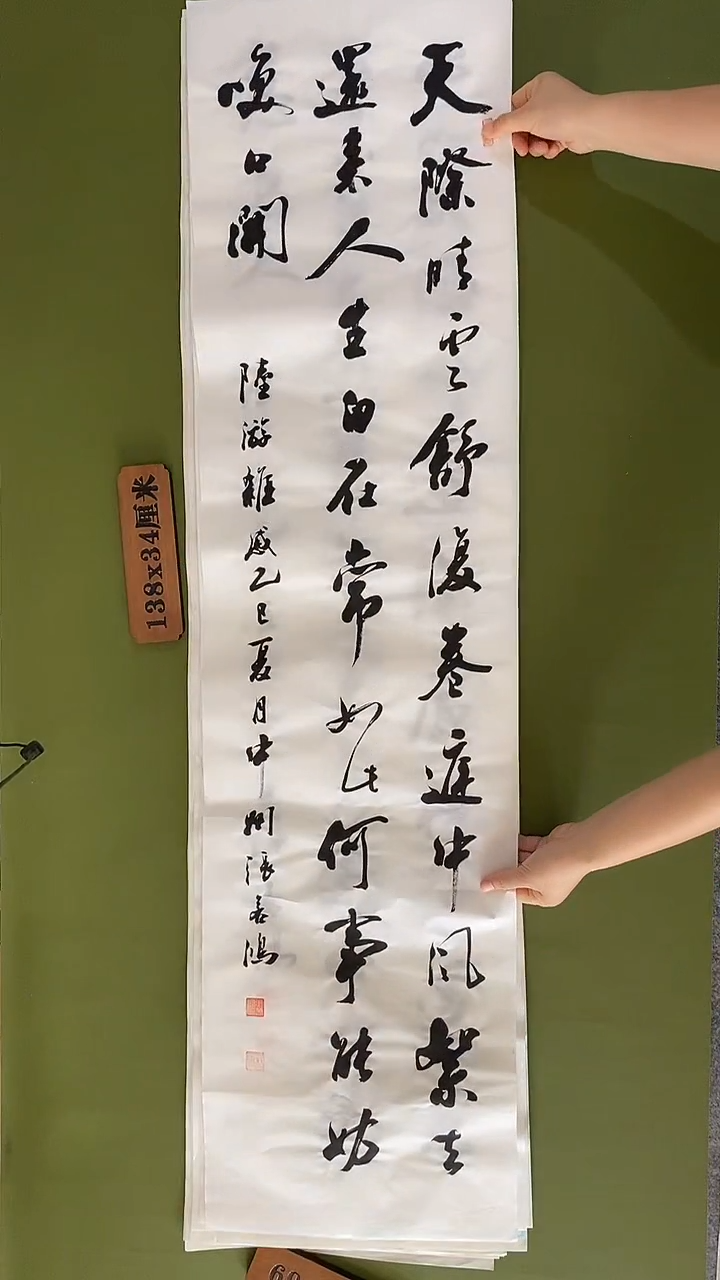 天際晴雲舒復卷庭中風絮去
還來人生自在常如此何事能妨
咲口開
陸游雜感乙巳夏月中州張鴻
138x34厘米